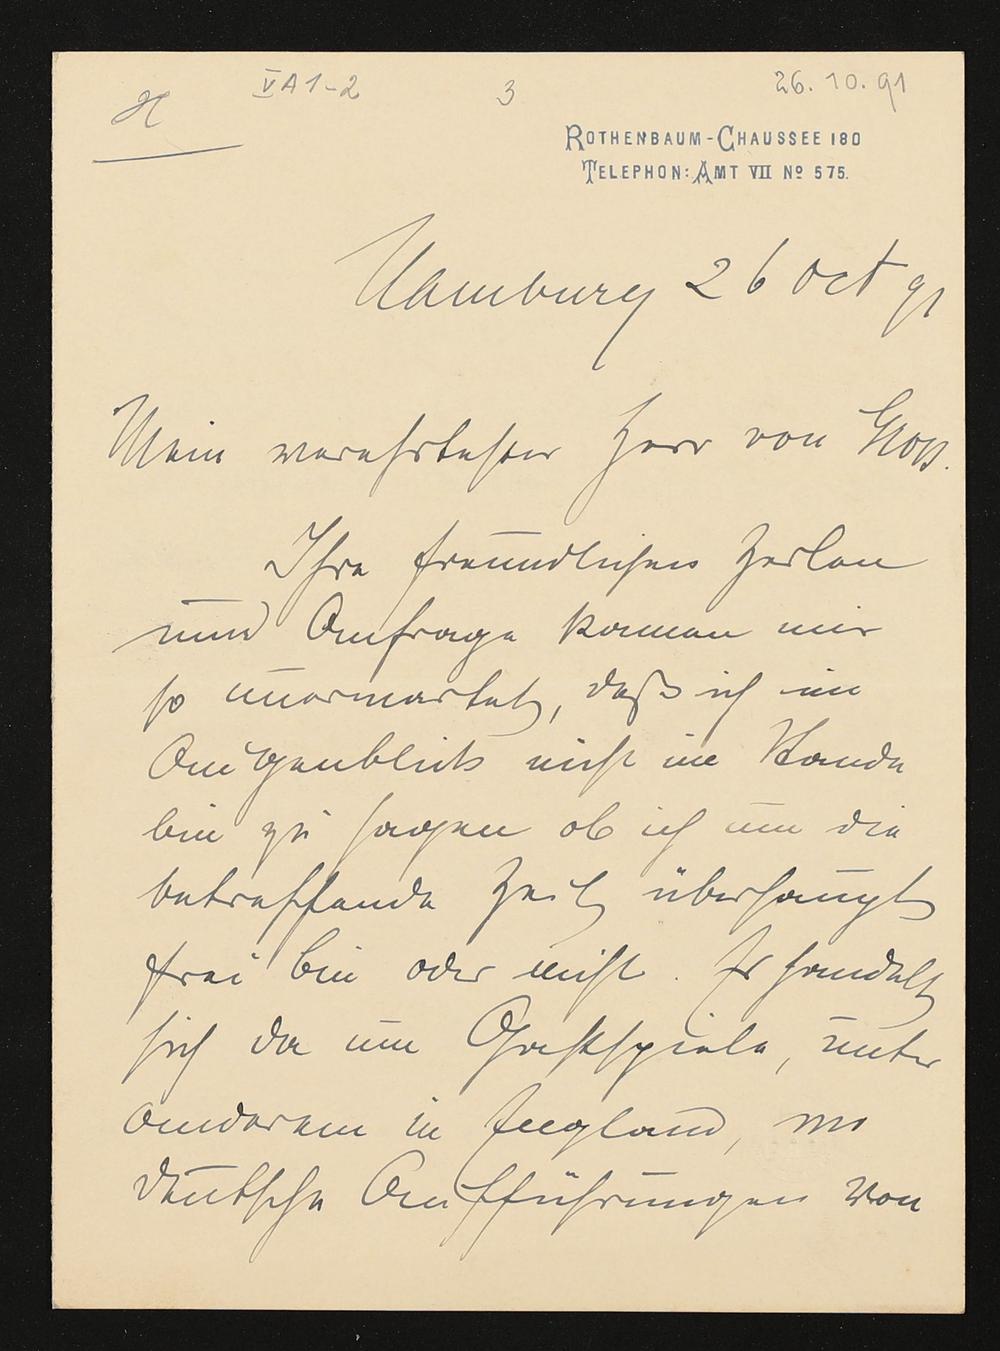 VA1-2
3
26.10.91
ROTHENBAUM-CHAUSSEE 180
TELEPHON: AMT VII No 575.
Hamburg 26 Oct 91
Mein verehrtester Herr von Gross.
Ihre freundlichen Zeilen
und Anfrage kamen mir
so unerwartet, daß ich im
Augenblick nicht im Stande
bin zu sagen ob ich um die
betreffende Zeit überhaupt
frei bin oder nicht. Es handelt
sich da um Gastspiele, unter
anderem in England, wo
deutsche Aufführungen von